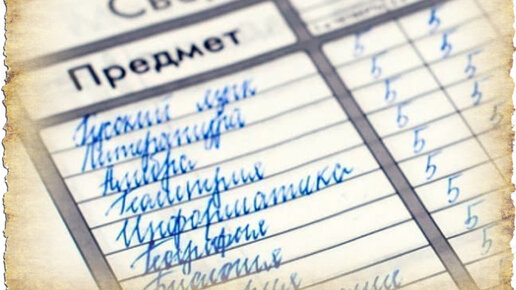 Све
Предмет
Русский язык 5 5
Литература 5 5
Алгебра 5 5
Геометрия 5 5
Информатика 5 5
География 5 5
Биология 5